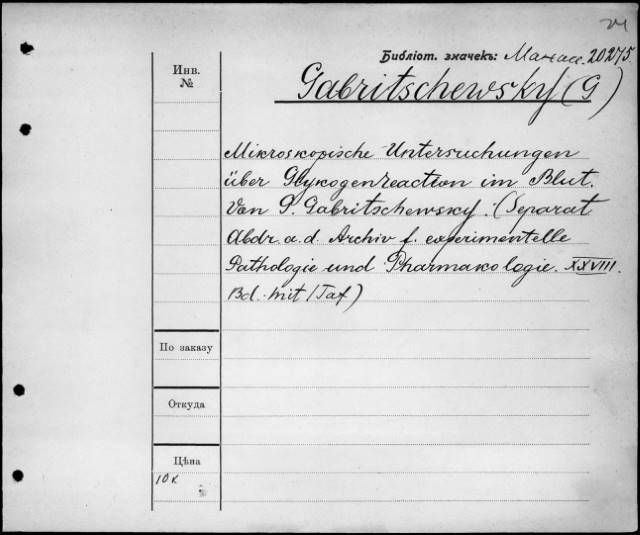 24
Библіот. значекъ: Махас. 20275.
Инв.
№
Gabritschewsky (G)
Mikroskopische Untersuchungen
über Glykogenreaction im Blut.
Von G. Gabritschewsky. (Separat
Abdr. a. d. Archiv f. experimentelle
Pathologie und Pharmakologie. XXVIII.
Bd. mit 1 Taf)
По заказу
Откуда
Цѣна
10 к